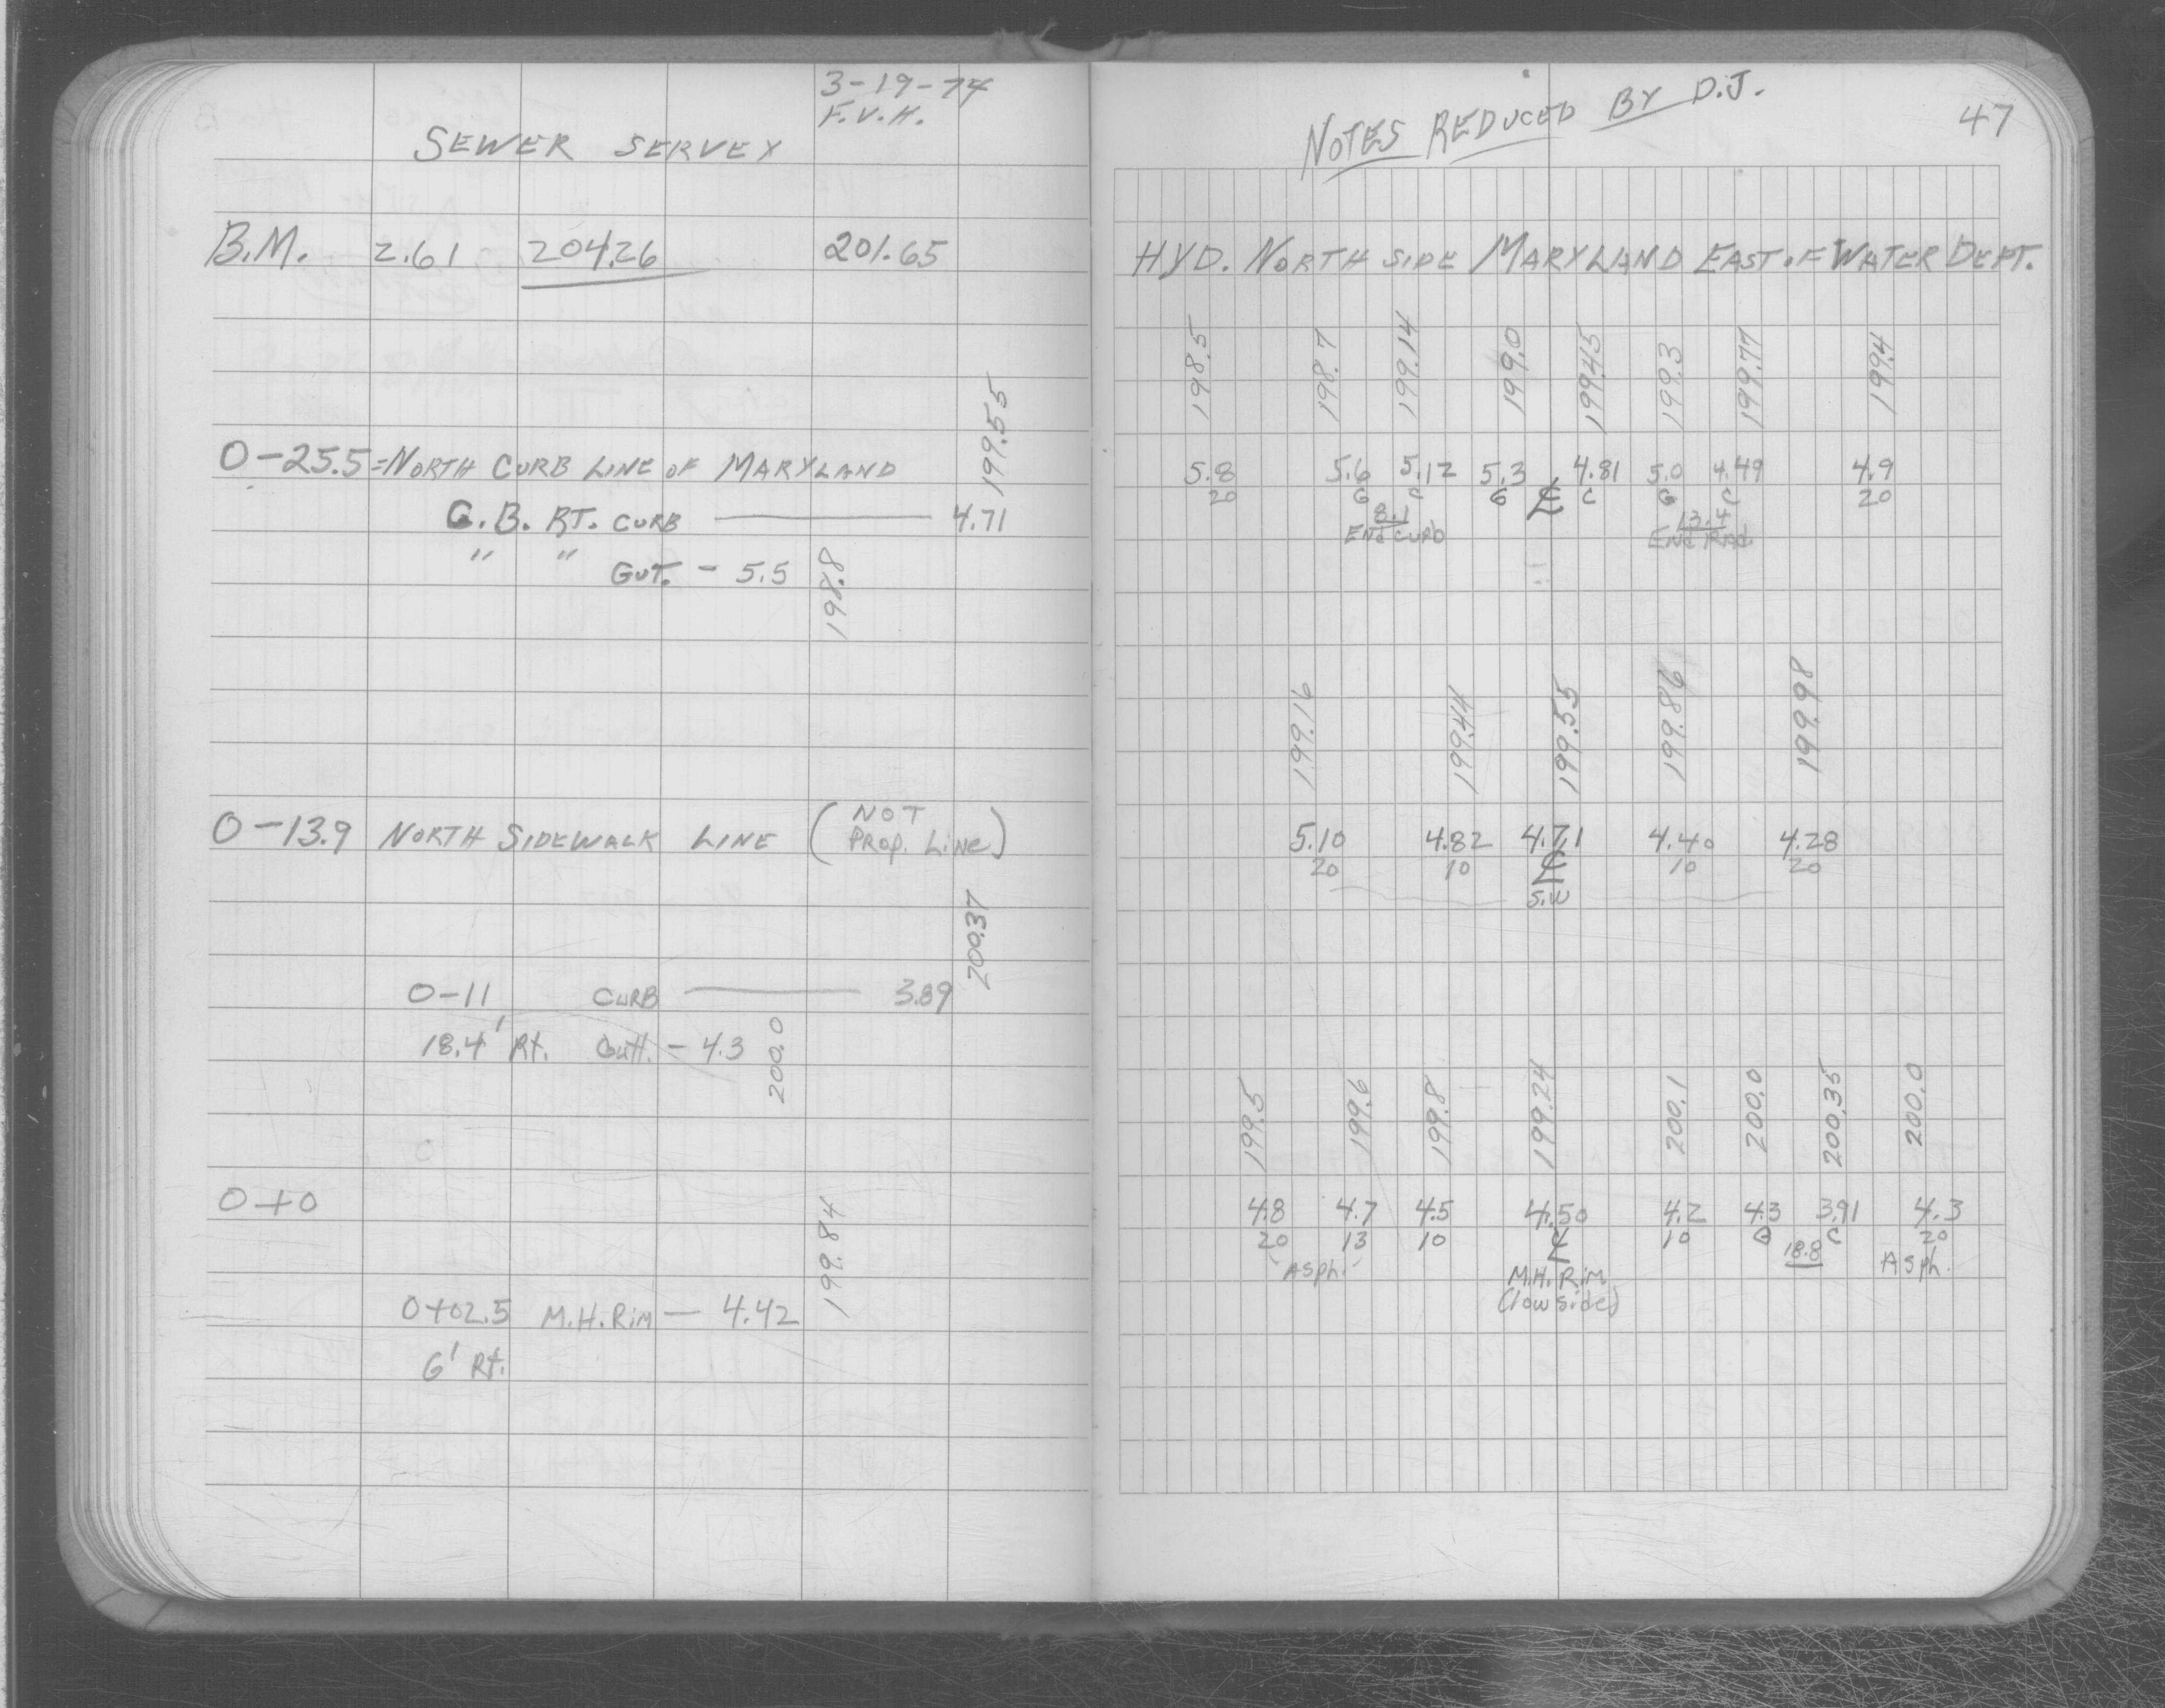 3-19-74
F.V.H.
SEWER SERVEY
B.M. 2.61 204.26 201.65
199.55
0-25.5 = NORTH CURB LINE OF MARYLAND
C.B. RT. CURB — 4.71
" " GUT. - 5.5 198.8
0-13.9 NORTH SIDEWALK LINE (NOT
Prop. Line)
200.37
0-11 CURB — 3.89
18.4' Rt. Gutt. - 4.3 200.0
0+0
199.84
0+02.5 M.H. Rim — 4.42
6' Rt.
NOTES REDUCED BY D.J.
47
HYD. NORTH SIDE MARYLAND EAST OF WATER DEPT.
198.5 198.7 199.14 199.0 199.45 199.3 199.77 199.4
5.8 5.6 5.12 5.3 4.81 5.0 4.49 4.9
20 G C G ℄ C G C 20
8.1 13.4
End Curb End Rad.
199.16 199.44 199.55 199.86 199.98
5.10 4.82 4.71 4.40 4.28
20 10 ℄ 10 20
S.W
199.5 199.6 199.8 199.24 200.1 200.0 200.35 200.0
4.8 4.7 4.5 4.50 4.2 4.3 3.91 4.3
20 13 10 ℄ 10 G C 20
18.8
Asph. M.H. Rim Asph.
(low side)